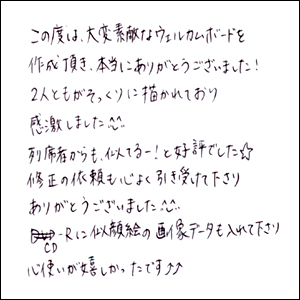 この度は、大変素敵なウェルカムボードを
作成頂き、本当にありがとうございました!
2人ともがそっくりに描かれており
感激しました^^
列席者からも、似てるー!と好評でした☆
修正の依頼も心よく引き受けて下さり
ありがとうございました^^
CD-Rに似顔絵の画像データも入れて下さり
心使いが嬉しかったです♪♪